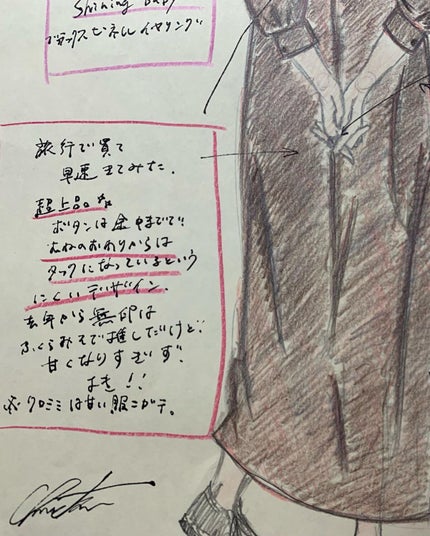 Shining
ブラックスピネルイヤリング
旅行で買て
早速きてみた。
超上品な
ボタンは途中までで!!
のおわりからは
タックになっているという
にくいデザイン。
去年から無印は
ふくらみそで推しだけど、
甘くなりすぎず、
よき!!
※クロミミは甘い服ニガテ。